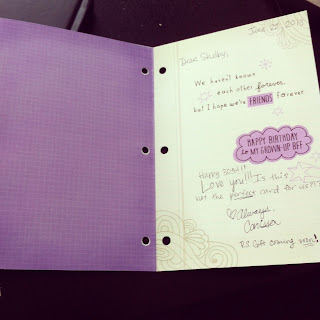 June 25, 2013
Dear Shelby,
We haven't known
each other forever,
but I hope we're FRIENDS forever
HAPPY BIRTHDAY
to MY GROWN-UP BFF
Happy Bday!!
Love you!!! Is this
not the perfect card for us?!?
♡ Always,
Carissa
P.S. Gift coming soon!